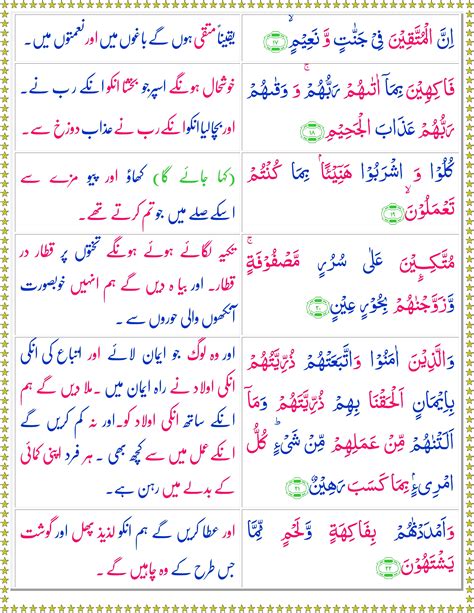 اِنَّ الْمُتَّقِيْنَ فِىْ جَنّٰتٍ وَّ نَعِيْمٍۙ ۱۷
یقیناً متقی ہوں گے باغوں میں اور نعمتوں میں۔
فَاكِهِيْنَ بِمَاۤ اٰتٰٮهُمْ رَبُّهُمْ‌ۚ وَ وَقٰٮهُمْ
رَبُّهُمْ عَذَابَ الْجَحِيْمِ ۱۸
خوشحال ہونگے اسپر جو بخشا انکو انکے رب نے۔
اور بچا لیا انکو انکے رب نے عذاب دوزخ سے۔
كُلُوْا وَ اشْرَبُوْا هَنِيْٓئًا ۢ بِمَا كُنْتُمْ
تَعْمَلُوْنَۙ ۱۹
(کہا جائے گا) کھاؤ اور پیو مزے سے
اسکے صلے میں جو تم کرتے تھے۔
مُتَّكِـِٕـيْنَ عَلٰى سُرُرٍ مَّصْفُوْفَةٍ‌ ۚ
وَزَوَّجْنٰهُمْ بِحُوْرٍ عِيْنٍ ۲۰
تکیہ لگائے ہوئے ہونگے تختوں پر قطار در
قطار۔ اور بیاہ دیں گے ہم انہیں خوبصورت
آنکھوں والی حوروں سے۔
وَالَّذِيْنَ اٰمَنُوْا وَاتَّبَعَتْهُمْ ذُرِّيَّتُهُمْ
بِاِيْمَانٍ اَلْحَـقْنَا بِهِمْ ذُرِّيَّتَهُمْ وَمَاۤ
اَلَـتْنٰهُمْ مِّنْ عَمَلِهِمْ مِّنْ شَىْءٍ‌ؕ كُلُّ
امْرِیءٍۢ بِمَا كَسَبَ رَهِيْنٌ ۲۱
اور وہ لوگ جو ایمان لائے اور اتباع کی انکی
انکی اولاد نے راہ ایمان میں۔ ملا دیں گے ہم
انکے ساتھ انکی اولاد کو۔ اور نہ کم کریں گے
انکے عمل میں سے کچھ بھی۔ ہر فرد اپنی کمائی
کے بدلے میں رہن ہے۔
وَاَمْدَدْنٰهُمْ بِفَاكِهَةٍ وَّلَحْمٍ مِّمَّا
يَشْتَهُوْنَ ۲۲
اور عطا کریں گے ہم انکو لذیذ پھل اور گوشت
جس طرح کے وہ چاہیں گے۔